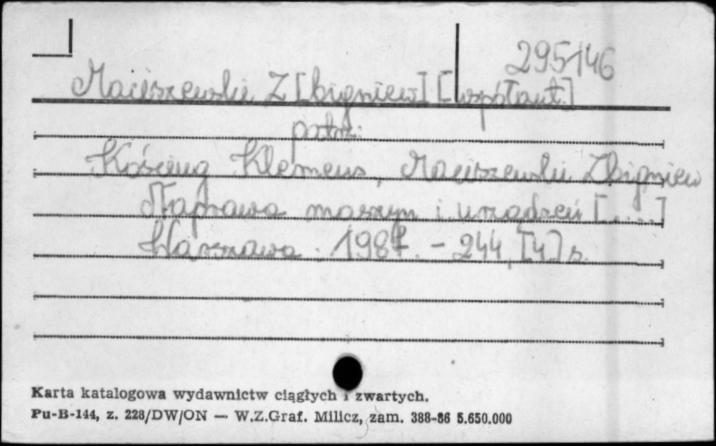 295146
Maciszewski Z[bigniew] [współaut.]
patrz:
Kościug Klemens, Maciszewski Zbigniew
Naprawa maszyn i urządzeń [....]
Warszawa. 1987. - 244, [4] s.
Karta katalogowa wydawnictw ciągłych i zwartych.
Pu-B-144, z. 228/DW/ON — W.Z.Graf. Milicz, zam. 388-86 5.650.000